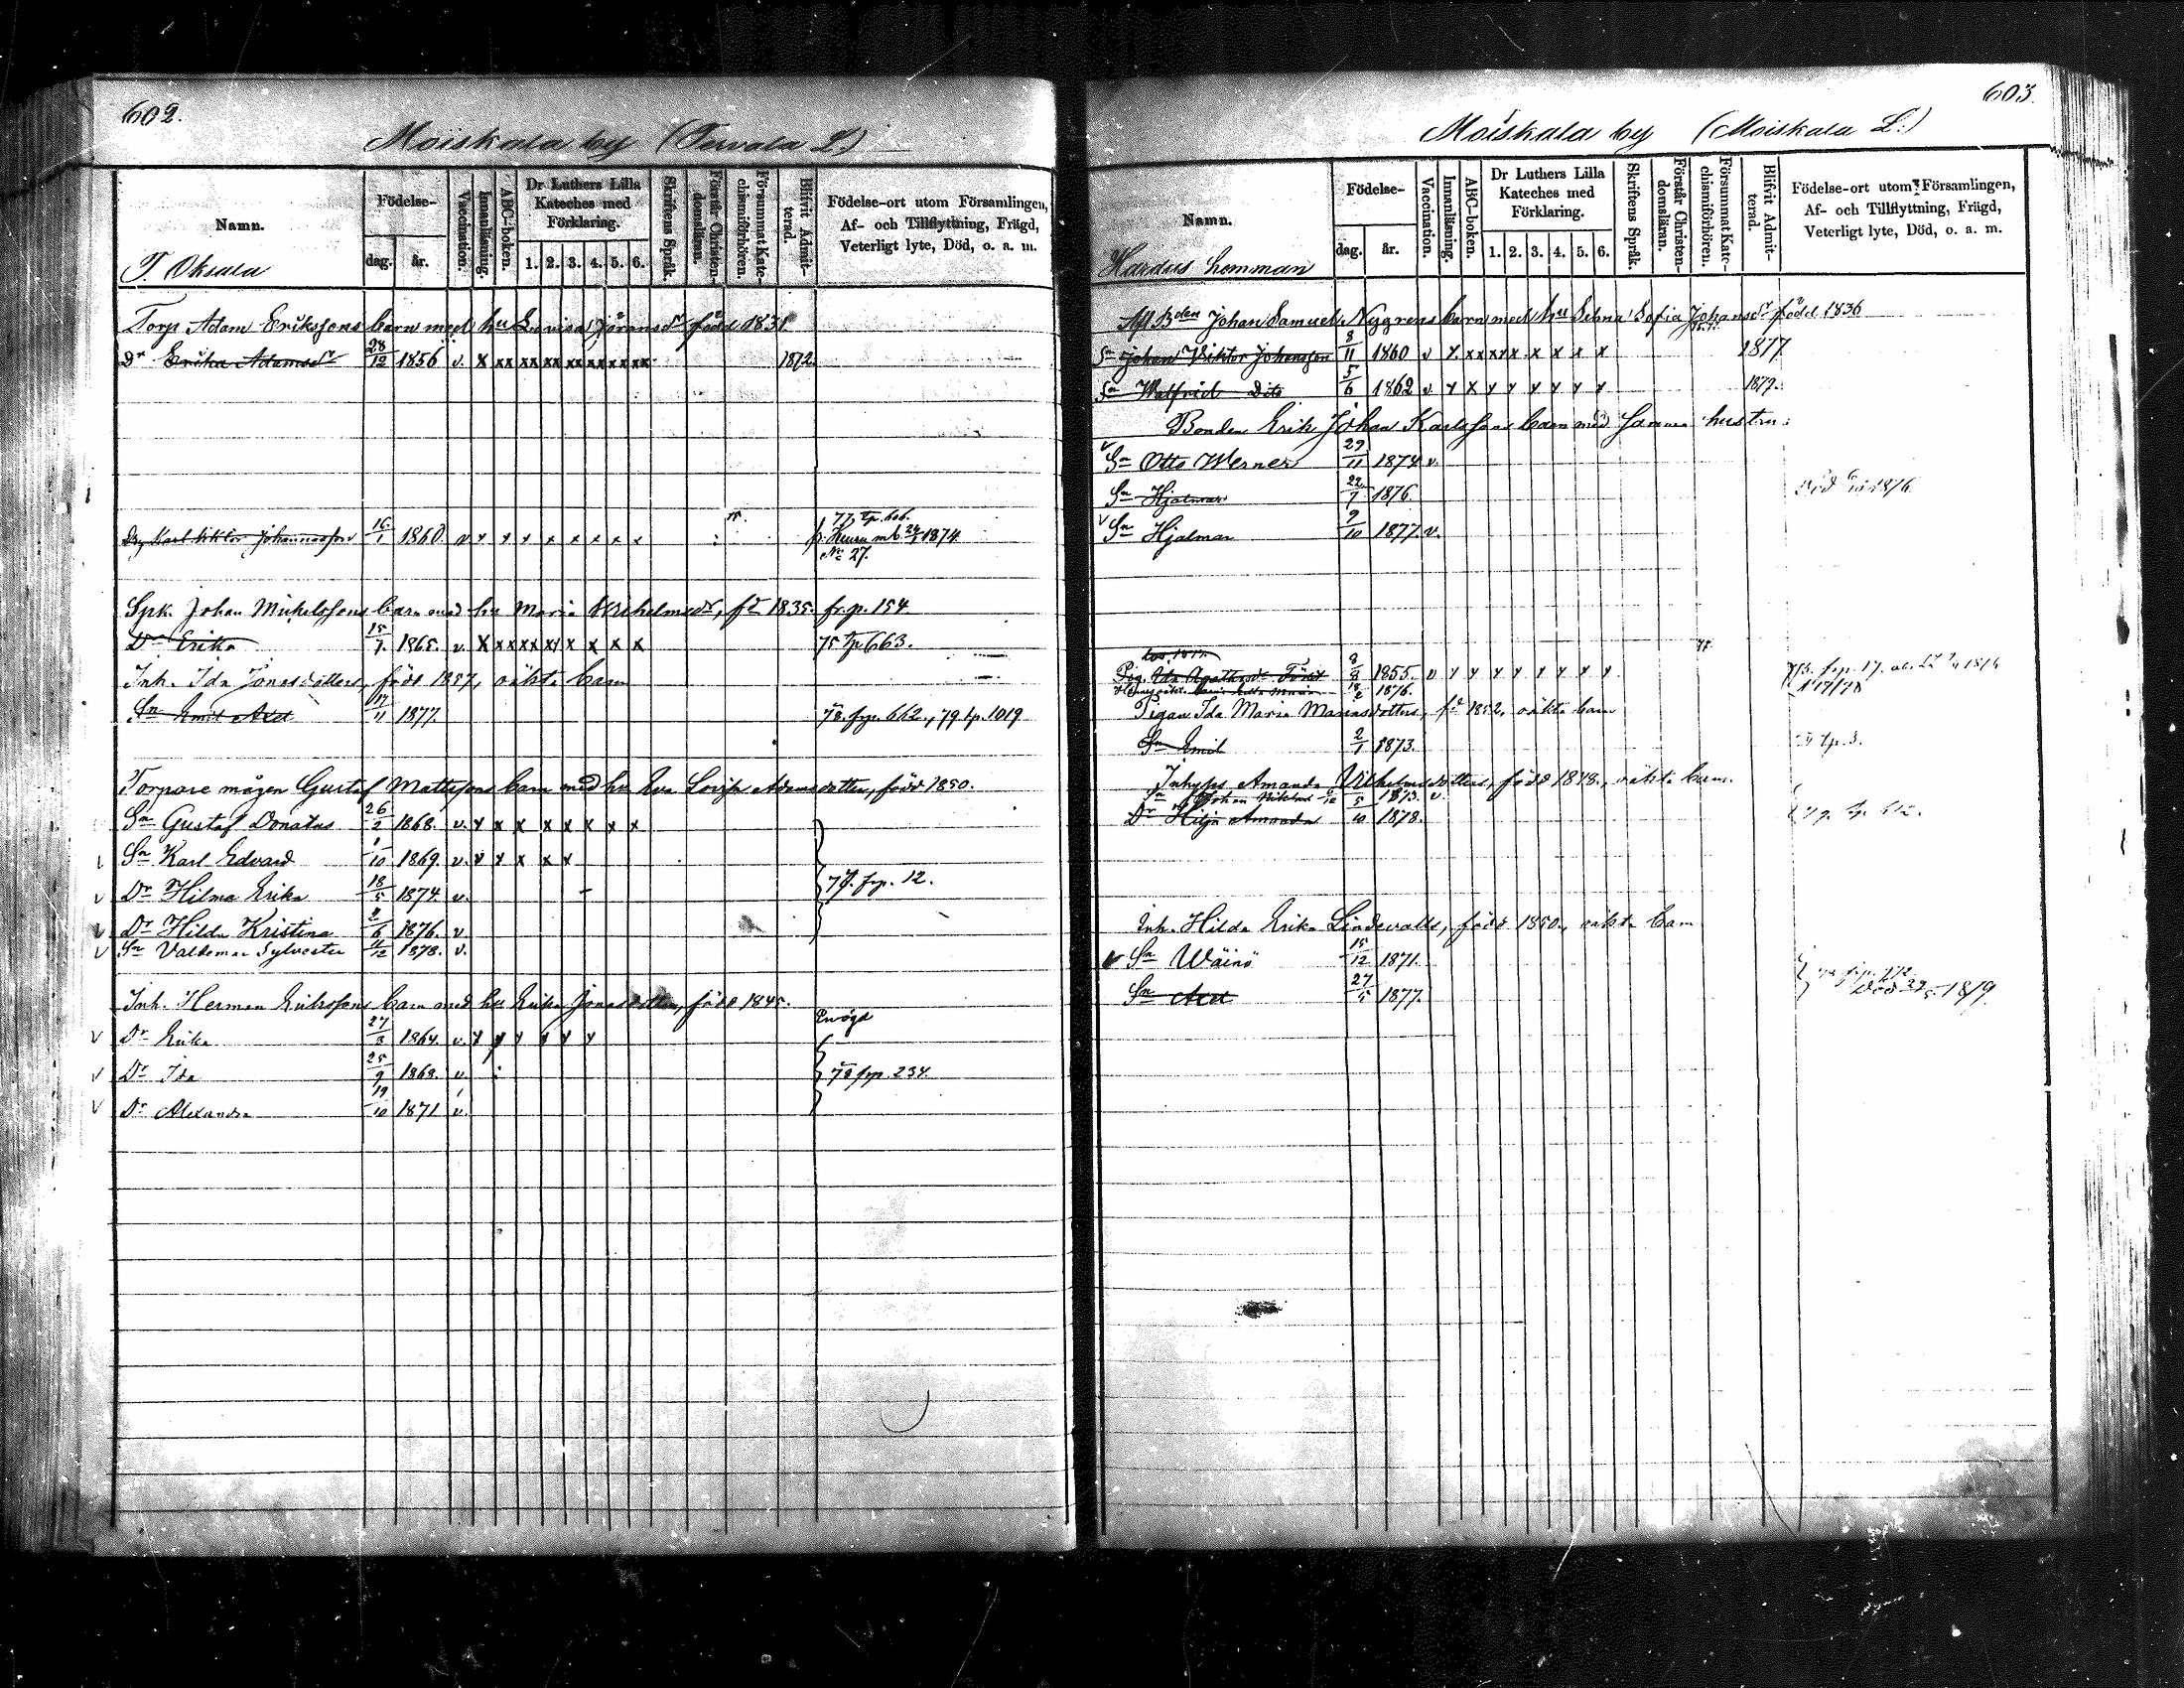 602.
Moiskala by (Tervala L.)
Namn.
Födelse-
dag.
år.
Vaccination.
Innanläsning.
ABC-boken.
Dr Luthers Lilla Kateches med Förklaring.
1. 2. 3. 4. 5. 6.
Skriftens Språk.
Förstår Christendomsläran.
Försummat Katechismiförhören.
Blifvit Admitterad.
Födelse-ort utom Församlingen, Af- och Tillflyttning, Frägd, Veterligt lyte, Död, o. a. m.
T. Oksala
Torp Adam Erikssons barn med hu Lovisa Göransdr född 1831
Dr Erika Adamsdr 28/12 1856 v. x xx xx xx xx xx xx xx 1872.
Karl Viktor Johannesson 16/1 1860 v x x x x x x x x 77, tp. 606. fr. Keuru mb 24/1 1874 No 27.
Spk. Johan Mickelssons barn med hu Maria Wilhelmsdr, fd 1835. fr. p. 154
Dr Erika 15/7 1865. v. x xx xx xx x x x x 75 tp 663.
Inh. Ida Jonasdotters, född 1857, oäkta barn
Sn Emil Axel 17/11 1877. 78. frp. 662., 79 tp. 1019
Torpare mågen Gustaf Mattssons barn med hu Eva Lovisa Adamsdotter, född 1850.
Sn Gustaf Donatus 26/2 1868. v. x x x x x x x x
v Sn Karl Edvard 1/10 1869. v. v x x x x
v Dr Hilma Erika 18/5 1874. v. 77. frp. 12.
v Dr Hilda Kristina 2/6 1876. v
v Sn Valdemar Sylvester 11/12 1878. v.
Inh. Herman Erikssons barn med hu Erika Jonasdotter, född 1845.
v Dr Erika 27/3 1864. v. x y y y y y
v Dr Ida 25/9 1868. v. 78 frp. 234.
v Dr Alexandra 19/10 1871 v.
603.
Moiskala by (Moiskala L:)
Namn.
Födelse-
dag.
år.
Vaccination.
Innanläsning.
ABC-boken.
Dr Luthers Lilla Kateches med Förklaring.
1. 2. 3. 4. 5. 6.
Skriftens Språk.
Förstår Christendomsläran.
Försummat Katechismiförhören.
Blifvit Admitterad.
Födelse-ort utom Församlingen, Af- och Tillflyttning, Frägd, Veterligt lyte, Död, o. a. m.
Hardus hemman
Afl Bden Johan Samuel Nygrens barn med hu Selma Sofia Johansdr född 1836
Sn Johan Viktor Johansson 8/11 1860 v x xx xx x x x x x 1877
Sn Walfrid Dito 5/6 1862 v y x y y y y y y 1879.
Bonden Erik Johan Karlssons barn med samma hustru:
v Sn Otto Werner 29/11 1874 v.
Sn Hjalmar 22/7 1876. Död 1876
v Sn Hjalmar 9/10 1877. v.
Pig. Ida Agathasdr 8/8 1855. v y y y y y y y y
18/2 1876.
Pigan Ida Maria Mariasdotters, fd 1852, oäkta barn
Sn Emil 2/1 1873. tp. 3.
Inhyses Amanda Vilhelmsdotters, född 1848., oäkta barn.
Sn Johan 1873. v.
Dr Hilja Amanda 10 1878. 79. tp. 612.
Inh. Hilda Erika Lindevalls, född 1850., oäkta barn
v Sn Wäinö 15/12 1871.
Sn Axel 27/5 1877. Död 29/5 1879